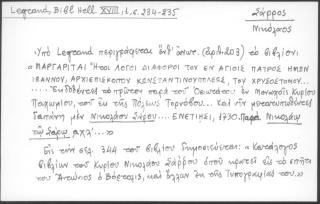 Legrand, Bibl Hell XVIII, t. ε. 234-235
Σάρρος
Νικόλαος
Ὑπό Legrand περιγράφεται ὑπ' ἀριθ. (ἀριθ. 203) τό βιβλίον
«ΜΑΡΓΑΡΙΤΑΙ Ἤτοι ΛΟΓΟΙ ΔΙΑΦΟΡΟΙ ΤΟΥ ΕΝ ΑΓΙΟΙΣ ΠΑΤΡΟΣ ΗΜΩΝ
ΙΩΑΝΝΟΥ, ΑΡΧΙΕΠΙΣΚΟΠΟΥ ΚΩΝΣΤΑΝΤΙΝΟΥΠΟΛΕΩΣ, ΤΟΥ ΧΡΥΣΟΣΤΟΜΟΥ...
... τό πρῶτον παρά τοῦ ἐν Μοναχοῖς Κυρίου
Παχωμίου, τοῦ ἐκ τῆς Πόλεως Τορνόβου... Καί νῦν
δαπάνῃ μέν Νικολάου Σάρου.... ΕΝΕΤΙΗΣΙ, 1730. Παρά Νικολάῳ
τῷ Σάρῳ αψλ'...»
Εἰς τήν σελ. 344 τοῦ βιβλίου δημοσιεύεται: «Κατάλογος
βιβλίων τοῦ Κυρίου Νικολάου Σάρρου ὁποῦ κρατεῖ εἰς τό σπῆτι
του Ἀντώνιος ὁ Βόρτολις, καί βγαλμένα ἐκ τῆς Τυπογραφίας του..»